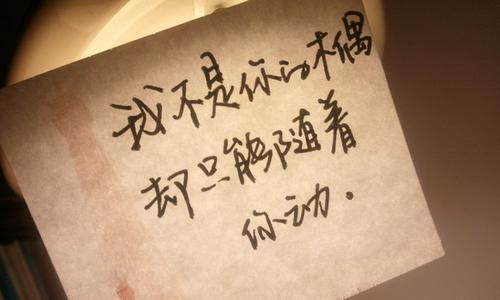 我不是你的木偶
却只能随着
你动.